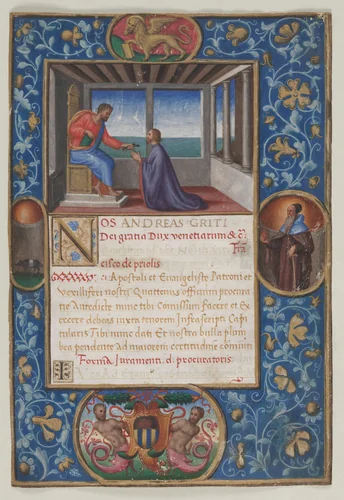 NOS ANDREAS GRITI
Dei gratia Dux venetiarum &
cisco de priolis
Apostoli et Evangeliste Patroni et
Vexilliferi nostri Quatenus officium procura
tie Antedicte nunc tibi Comissum facere et Ex
ercere debeas iuxta tenorem Infrascripti Capi
tularis Tibi nunc dati Et nostra bulla plum
bea pendente ad maiorem certitudinem comuniti
Forma Juramenti d. procuratoris